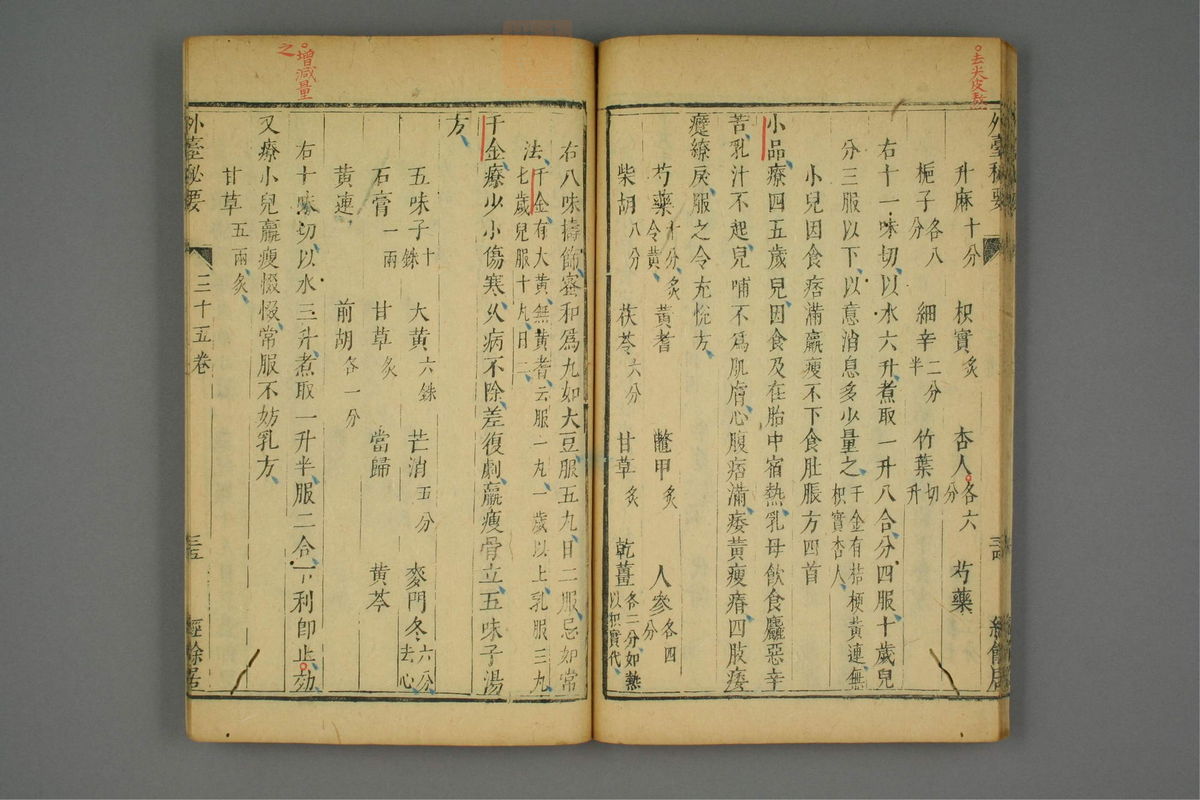 去大皮
外臺秘要
經餘居
升麻十分 枳實炙 杏人各六分 芍藥
梔子各八分 細辛二分半 竹葉切升
右十一味切以水六升煮取一升八合分四服十歲兒
分三服以下以意消息多少量之千金有桔梗黃連無枳實杏人
小兒因食痞滿羸瘦不下食肚脹方四首
小品療四五歲兒因食及在胎中宿熱乳母飲食麤惡辛
苦乳汁不起兒哺不爲肌膚心腹痞滿痿黃瘦瘠四肢痿
躄繚戾服之令充悅方
芍藥十分炙令黃 黃耆 鼈甲炙 人參各四分
柴胡八分 茯苓六分 甘草炙 乾薑各二分如熱以枳實代
右八味擣篩蜜和爲丸如大豆服五丸日二服忌如常
法千金有大黃無黃耆云服一丸一歲以上乳服三丸七歲兒服十丸日二
千金療少小傷寒久病不除差復劇羸瘦骨立五味子湯
方
五味子十銖 大黃六銖 芒消五分 麥門冬六分去心
石膏一兩 甘草炙 當歸 黃芩
黃連 前胡各一分
右十味切以水三升煮取一升半服二合下利卽止効
又療小兒羸瘦惙惙常服不妨乳方
甘草五兩炙
外臺秘要
三十五卷
經餘居
增減量之